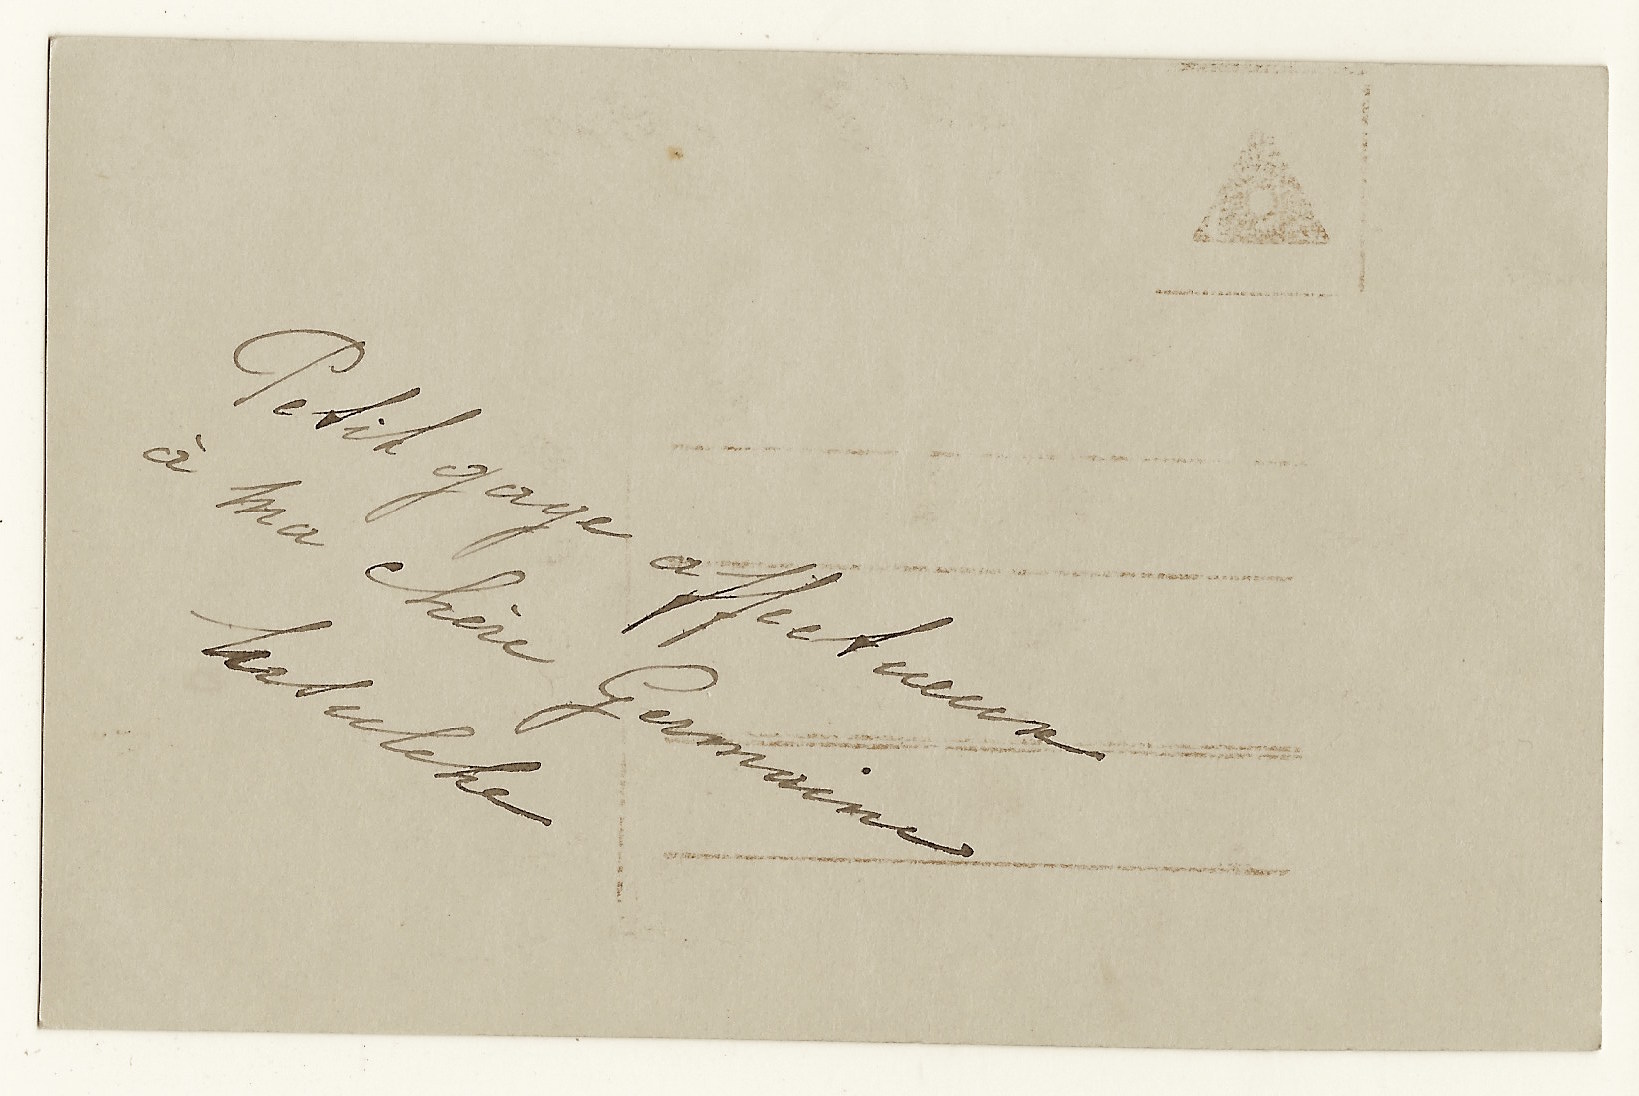 Petit gage affectueux
à ma chère Germaine